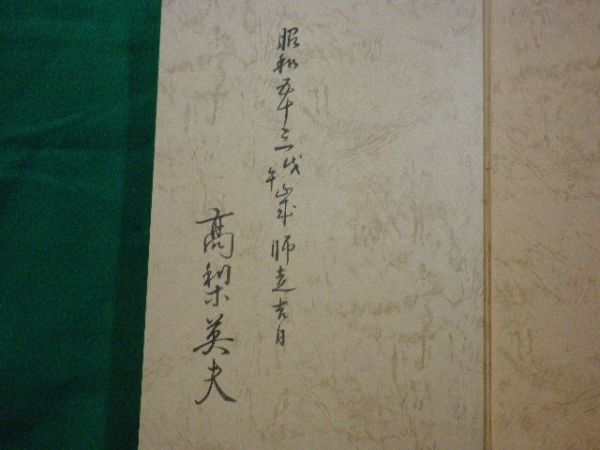 昭和五十三戊午歳師走吉日
高梨英夫